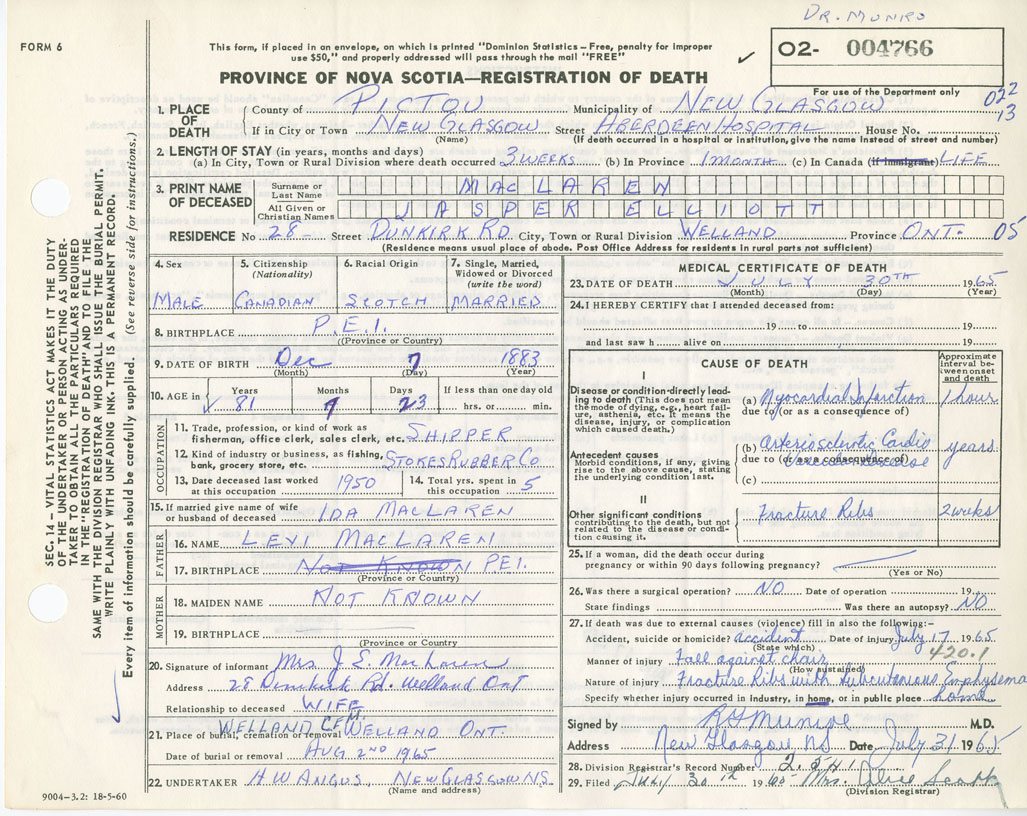 DR. MUNRO
FORM 6
This form, if placed in an envelope, on which is printed "Dominion Statistics—Free, penalty for improper
use $50," and properly addressed will pass through the mail "FREE"
02- 004766
PROVINCE OF NOVA SCOTIA—REGISTRATION OF DEATH
For use of the Department only
022
13
1. PLACE OF DEATH County of PICTOU Municipality of NEW GLASGOW
If in City or Town NEW GLASGOW Street ABERDEEN HOSPITAL House No.
(Name) (If death occurred in a hospital or institution, give the name instead of street and number)
2. LENGTH OF STAY (in years, months and days)
(a) In City, Town or Rural Division where death occurred 3 WEEKS (b) In Province 1 MONTH (c) In Canada (if immigrant) LIFE
3. PRINT NAME OF DECEASED
Surname or Last Name MACLAREN
All Given or Christian Names JASPER ELLIOTT
RESIDENCE No 28 Street DUNKIRK RD. City, Town or Rural Division WELLAND Province ONT. 05
(Residence means usual place of abode. Post Office Address for residents in rural parts not sufficient)
4. Sex MALE
5. Citizenship (Nationality) CANADIAN
6. Racial Origin SCOTCH
7. Single, Married, Widowed or Divorced (write the word) MARRIED
8. BIRTHPLACE P.E.I.
(Province or Country)
9. DATE OF BIRTH Dec 7 1883
(Month) (Day) (Year)
10. AGE in Years 81 Months 7 Days 23 If less than one day old hrs. or min.
OCCUPATION
11. Trade, profession, or kind of work as fisherman, office clerk, sales clerk, etc. SHIPPER
12. Kind of industry or business, as fishing, bank, grocery store, etc. STOKES RUBBER CO
13. Date deceased last worked at this occupation 1950
14. Total yrs. spent in this occupation 5
15. If married give name of wife or husband of deceased IDA MACLAREN
FATHER
16. NAME LEVI MACLAREN
17. BIRTHPLACE NOT KNOWN PEI.
(Province or Country)
MOTHER
18. MAIDEN NAME NOT KNOWN
19. BIRTHPLACE
(Province or Country)
20. Signature of informant Mrs J. E. MacLaren
Address 28 Dunkirk Rd. Welland Ont
Relationship to deceased WIFE
21. Place of burial, cremation or removal WELLAND CEM. WELLAND ONT.
Date of burial or removal AUG. 2ND 1965
22. UNDERTAKER H.W ANGUS, NEW GLASGOW N.S.
(Name and address)
MEDICAL CERTIFICATE OF DEATH
23. DATE OF DEATH JULY 30TH 1965
(Month) (Day) (Year)
24. I HEREBY CERTIFY that I attended deceased from:
19 to 19
and last saw h alive on 19
CAUSE OF DEATH
Approximate interval between onset and death
I
Disease or condition directly leading to death (This does not mean the mode of dying, e.g., heart failure, asthenia, etc. It means the disease, injury, or complication which caused death.)
(a) Myocardial Infarction 1 hour
due to (or as a consequence of)
Antecedent causes
Morbid conditions, if any, giving rise to the above cause, stating the underlying condition last.
(b) Arteriosclerotic Cardio years
due to (or as a consequence of)
(c)
II
Other significant conditions contributing to the death, but not related to the disease or condition causing it.
Fracture Ribs 2 weeks
25. If a woman, did the death occur during pregnancy or within 90 days following pregnancy?
(Yes or No)
26. Was there a surgical operation? NO Date of operation 19
State findings Was there an autopsy? NO
27. If death was due to external causes (violence) fill in also the following:—
Accident, suicide or homicide? accident Date of injury July 17 1965
(State which) 420.1
Manner of injury Fall against chair
(How sustained)
Nature of injury Fracture Ribs with Subcutaneous Emphysema
Specify whether injury occurred in industry, in home, or in public place home
Signed by RG Munroe M.D.
Address New Glasgow NS Date July 31 1965
28. Division Registrar's Record Number
29. Filed July 30th 1965 Mrs.
(Division Registrar)
SEC. 14—VITAL STATISTICS ACT MAKES IT THE DUTY
OF THE UNDERTAKER OR PERSON ACTING AS UNDER-
TAKER TO OBTAIN ALL THE PARTICULARS REQUIRED
IN THE "REGISTRATION OF DEATH" AND TO FILE THE
SAME WITH THE DIVISION REGISTRAR WHO SHALL ISSUE THE BURIAL PERMIT.
WRITE PLAINLY WITH UNFADING INK. THIS IS A PERMANENT RECORD.
Every item of information should be carefully supplied. (See reverse side for instructions.)
9004-3.2: 18-5-60